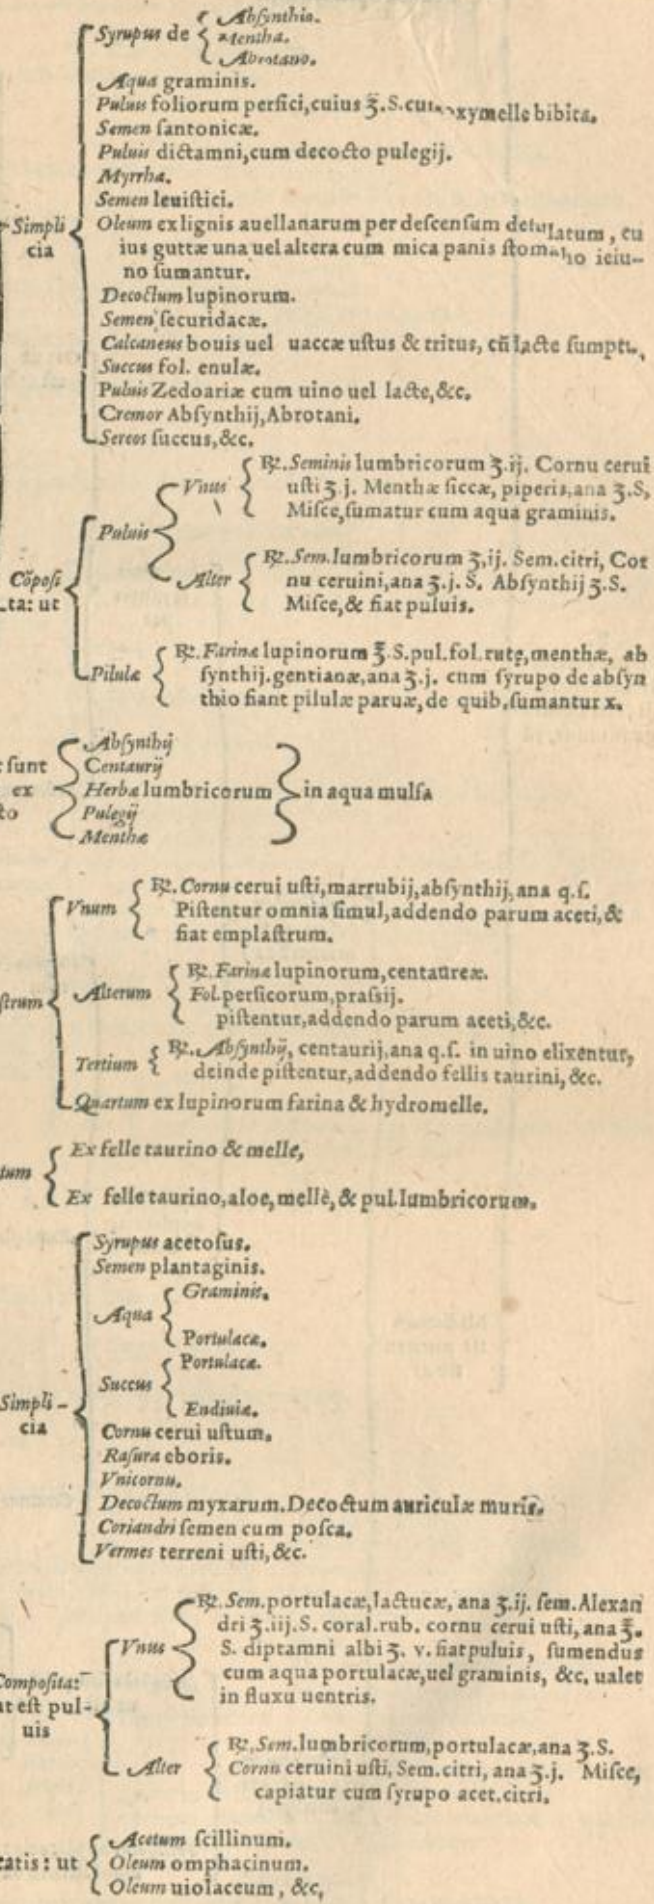 Syrupus de
Absynthio.
Mentha.
Abrotano.
Aqua graminis.
Puluis foliorum persici, cuius ʒ.S. cum oxymelle bibita.
Semen santonicæ.
Puluis dictamni, cum decocto pulegij.
Myrrha.
Semen leuistici.
Simpli
cia
Oleum ex lignis auellanarum per descensum, cu
ius guttæ una uel altera cum mica panis ieiu-
no sumantur.
Decoctum lupinorum.
Semen securidacæ.
Calcaneus bouis uel uaccæ ustus & tritus, cũ lacte
Succus fol. enulæ.
Puluis Zedoariæ cum uino uel lacte, &c.
Cremor Absynthij, Abrotani.
Sereos succus, &c.
Cõposi
ta: ut
Puluis
Vnus
℞. Seminis lumbricorum ʒ.ij. Cornu cerui
usti ʒ.j. Menthæ siccæ, piperis, ana ʒ.S,
Misce, sumatur cum aqua graminis.
Alter
℞. Sem. lumbricorum ʒ.ij. Sem. citri, Cor
nu ceruini, ana ʒ.j.S. Absynthij ʒ.S.
Misce, & fiat puluis.
Pilulæ
℞. Farinæ lupinorum ℥.S. pul. fol. rutę, menthæ, ab
synthij. gentianæ, ana ʒ.j. cum syrupo de absyn
thio fiant pilulæ paruæ, de quib. sumantur x.
sunt
ex
to
Absynthij
Centaurij
Herbæ lumbricorum
Pulegij
Menthæ
in aqua mulsa
strum
Vnum
℞. Cornu cerui usti, marrubij, absynthij, ana q.s.
Pistentur omnia simul, addendo parum aceti, &
fiat emplastrum.
Alterum
℞. Farinæ lupinorum, centaureæ.
Fol. persicorum, prassij.
pistentur, addendo parum aceti, &c.
Tertium
℞. Absynthij, centaurij, ana q.s. in uino elixentur,
deinde pistentur, addendo fellis taurini, &c.
Quartum ex lupinorum farina & hydromelle.
tum
Ex felle taurino & melle,
Ex felle taurino, aloe, melle, & pul. lumbricorum.
Simpli-
cia
Syrupus acetosus.
Semen plantaginis.
Aqua
Graminis.
Portulacæ.
Succus
Portulacæ.
Endiuiæ.
Cornu cerui ustum.
Rasura eboris.
Vnicornu.
Decoctum myxarum. Decoctum auriculæ muris.
Coriandri semen cum posca.
Vermes terreni usti, &c.
Composita:
ut est pul-
uis
Vnus
℞. Sem. portulacæ, lactucæ, ana ʒ.ij. sem. Alexan
dri ʒ.iij.S. coral. rub. cornu cerui usti, ana ʒ.
S. diptamni albi ʒ. v. fiat puluis, sumendus
cum aqua portulacæ, uel graminis, &c. ualet
in fluxu uentris.
Alter
℞. Sem. lumbricorum, portulacæ, ana ʒ.S.
Cornu ceruini usti, Sem. citri, ana ʒ.j. Misce,
capiatur cum syrupo acet. citri.
tatis: ut
Acetum scillinum.
Oleum omphacinum.
Oleum uiolaceum, &c.